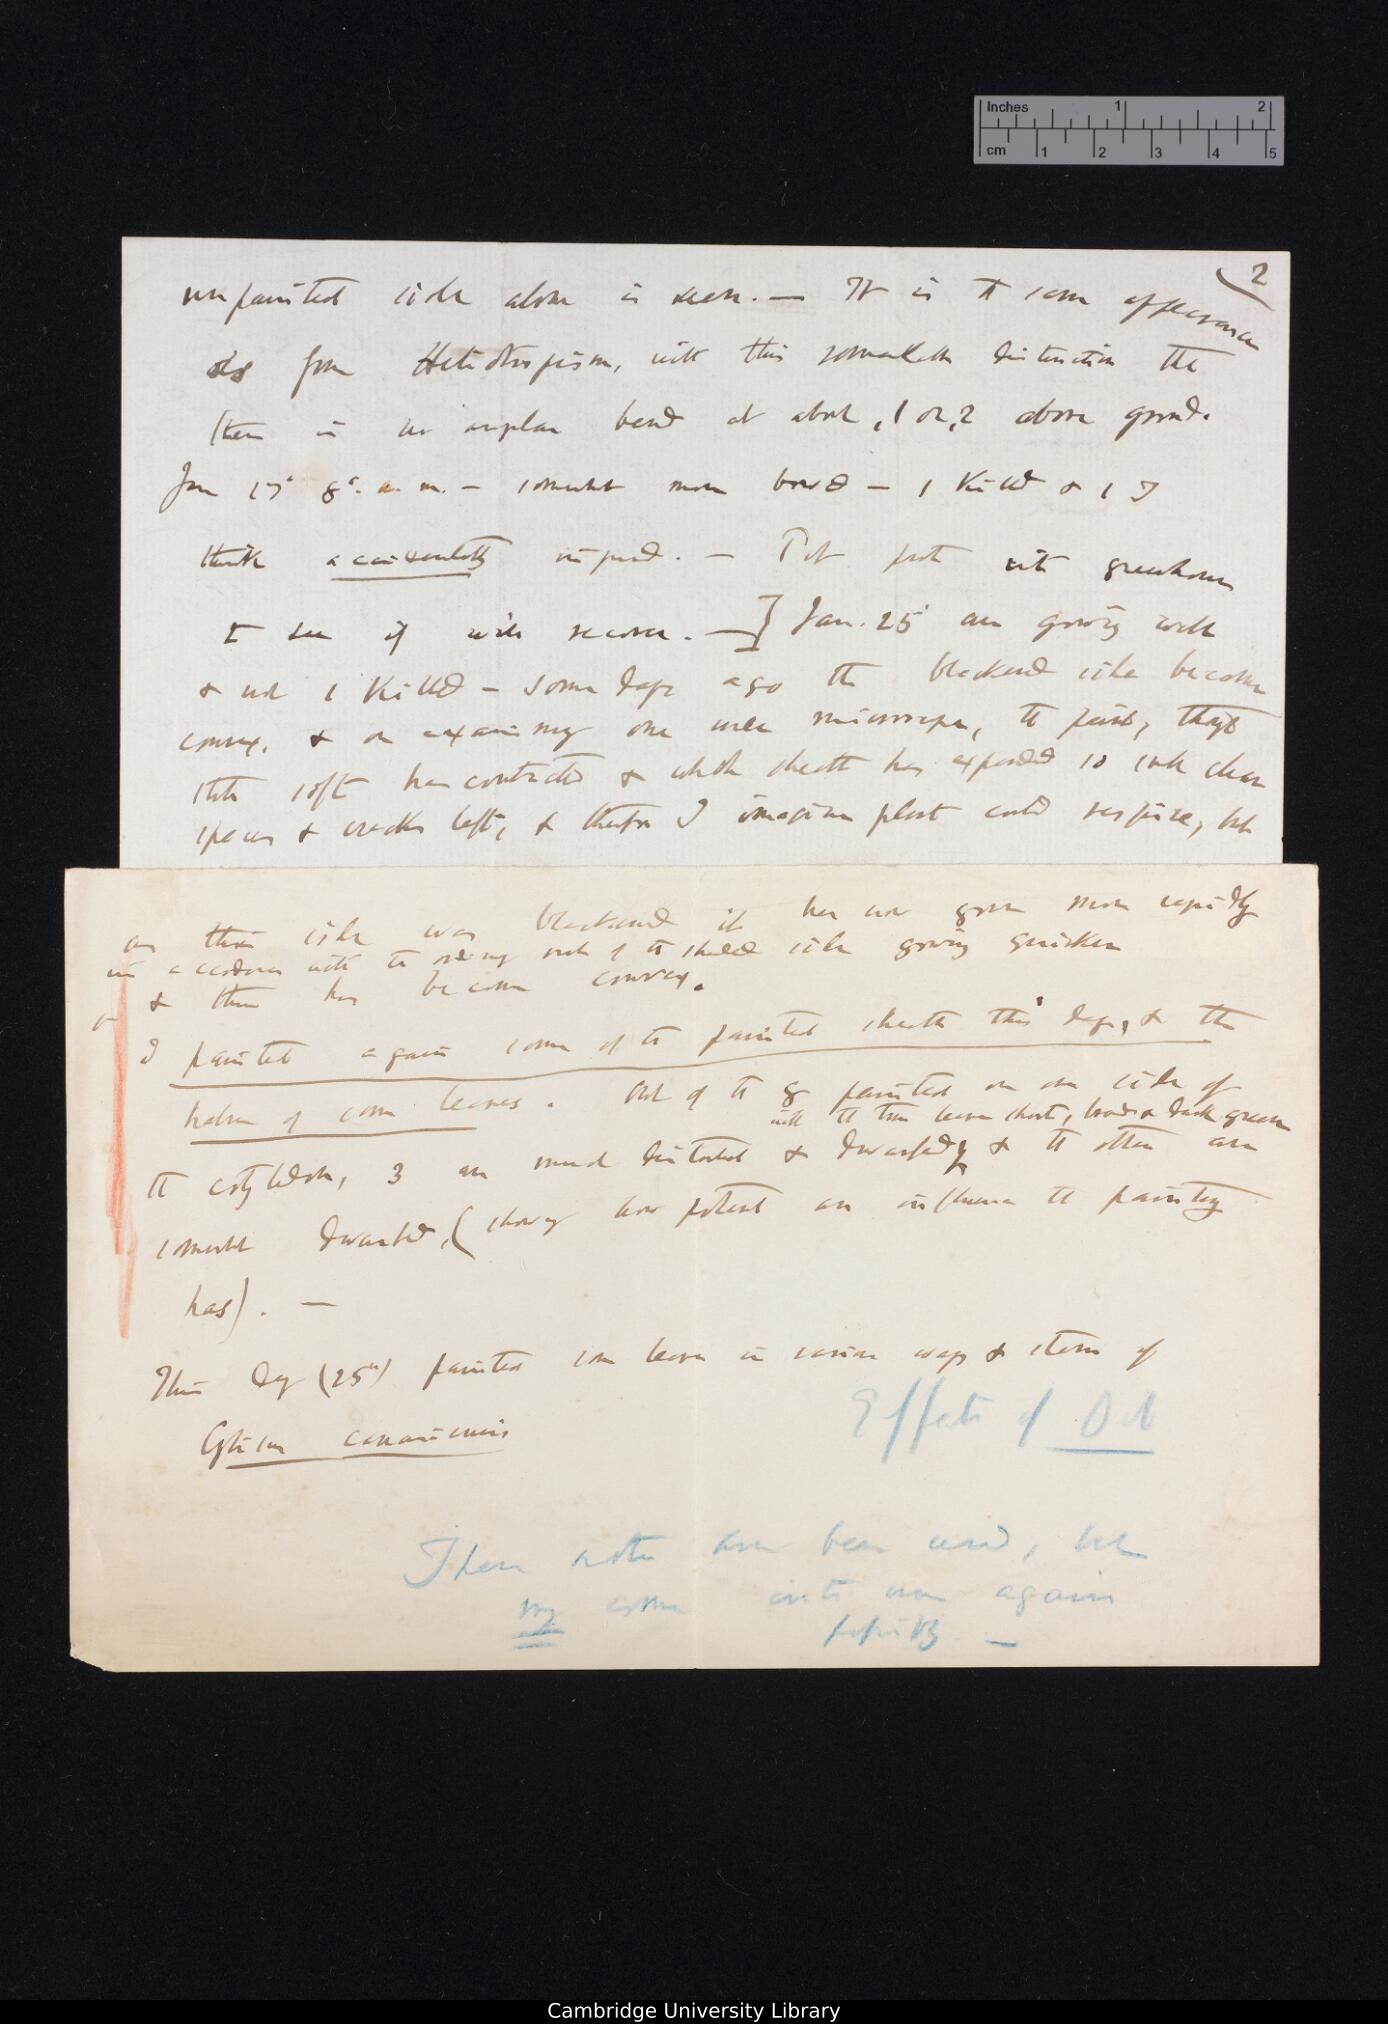 Inches 1 2
cm 1 2 3 4 5
2
unpainted side alone is seen. — It is the same appearance
as from Heliotropism, with this remarkable distinction that
there is no angular bend at about, 1 or 2 above ground.
Jan 17' 8°. a.m. — somewhat more bowed — 1 killed & 1 I
think accidentally injured. — Pot put into greenhouse
to see if will recover. —] Jan. 25' are growing well
& not 1 killed — Some days ago the blackened side became
convex, & on examining one under microscope, the paint, though
still soft has contracted & whole sheath has expanded so with clear
spaces & cracks left, & therefore I imagine plant could respire, but
as this side was blackened it has now grown more rapidly
in accordance with the side of the shaded side growing quicker
& thus has become convex.
I painted again some of the painted sheaths this day, & the
halves of some leaves. Out of the 8 painted on one side of
with the true leaves short, broad & dark green
the cotyledon, 3 are much distorted & dwarfed, & the others are
somewhat dwarfed, (showing how potent an influence the painting
has). —
This day (25th) painted some leaves in various ways & stems of
Cytisus canariensis
Effects of Oil
These notes have been used, but
my come into use again
possibly. —
Cambridge University Library